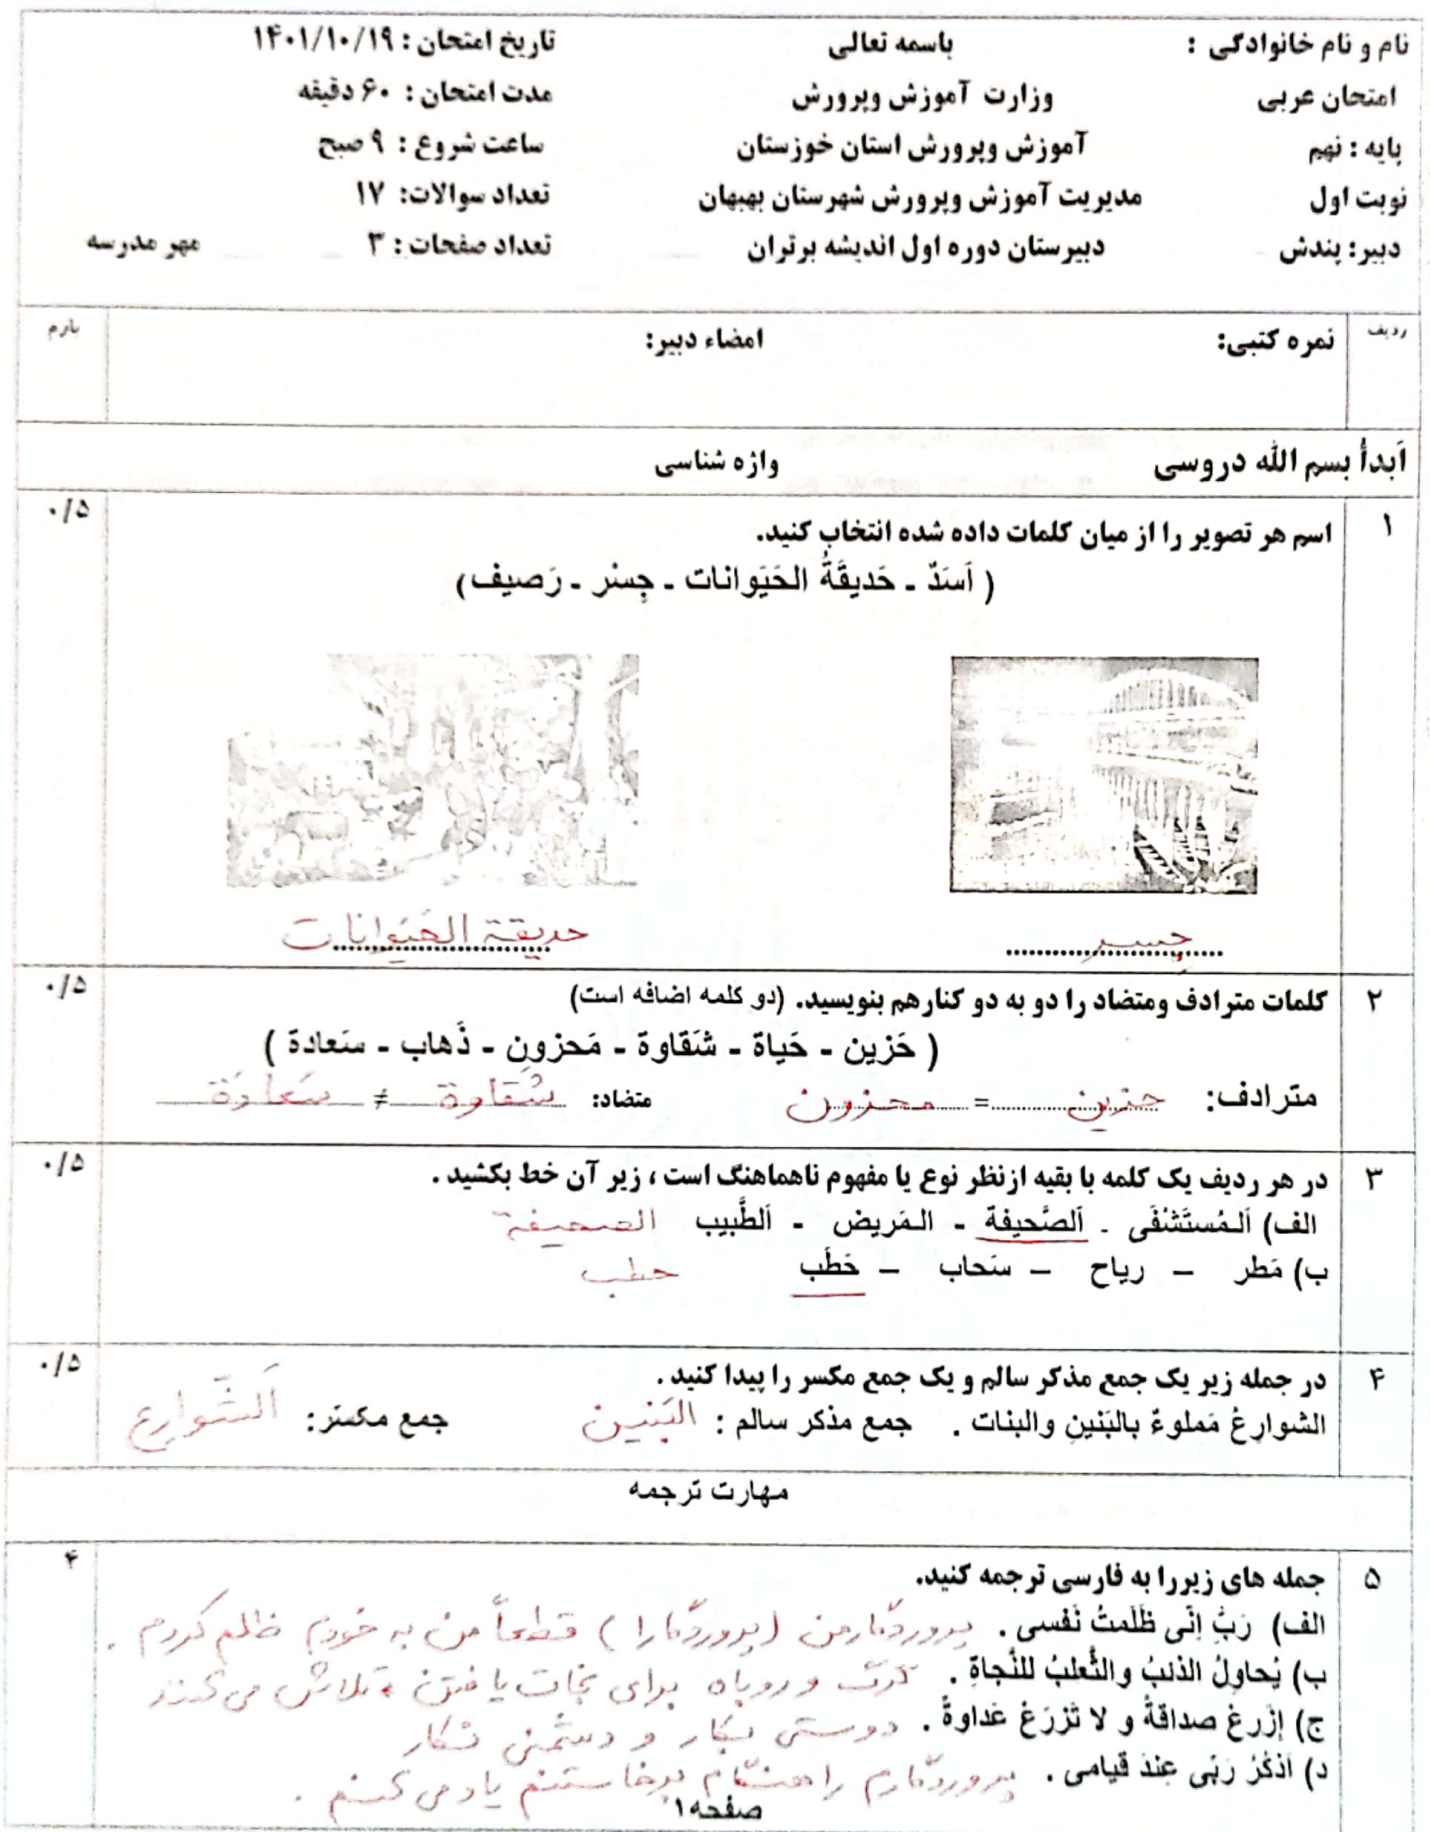 نام و نام خانوادگی : باسمه تعالی تاریخ امتحان : ۱۴۰۱/۱۰/۱۹
امتحان عربی وزارت آموزش وپرورش مدت امتحان : ۶۰ دقیقه
پایه : نهم آموزش وپرورش استان خوزستان ساعت شروع : ۹ صبح
نوبت اول مدیریت آموزش وپرورش شهرستان بهبهان تعداد سوالات: ۱۷
دبیر: پندش دبیرستان دوره اول اندیشه برتران تعداد صفحات : ۳ مهر مدرسه
ردیف نمره کتبی: امضاء دبیر: بارم
اَبدأ بسم الله دروسی واژه شناسی
۱ اسم هر تصویر را از میان کلمات داده شده انتخاب کنید. ۰/۵
( اَسَدٌ ـ حَدیقَةُ الحَیَوانات ـ جِسْر ـ رَصیف)
جِسر حدیقة الحَیَوانات
۲ کلمات مترادف ومتضاد را دو به دو کنارهم بنویسید. (دو کلمه اضافه است) ۰/۵
( حَزین - حَیاة - شَقاوة - مَحزون - ذَهاب - سَعادة )
مترادف: حزین = محزون متضاد: شَقاوة ≠ سَعادَة
۳ در هر ردیف یک کلمه با بقیه ازنظر نوع یا مفهوم ناهماهنگ است ، زیر آن خط بکشید . ۰/۵
الف) اَلـمُستَشْفَی ـ اَلصَّحیفة ـ الـمَریض ـ اَلطَّبیب الصحیفة
ب) مَطر – ریاح – سَحاب – حَطَب حطب
۴ در جمله زیر یک جمع مذکر سالم و یک جمع مکسر را پیدا کنید . ۰/۵
الشوارِعُ مَملوءٌ بالبَنینِ والبنات . جمع مذکر سالم : البَنین جمع مکسّر: اَلشّوارِع
مهارت ترجمه
۵ جمله های زیررا به فارسی ترجمه کنید. ۴
الف) رَبِّ اِنّی ظَلَمتُ نَفسی . پروردگارمن (پروردگارا) قطعاً من به خودم ظلم کردم .
ب) یُحاوِلُ الذئبُ والثَّعلبُ للنَّجاةِ . گرگ و روباه برای نجات یافتن تلاش می کنند
ج) اِزْرعْ صداقةً و لا تَزْرَعْ عَداوةً . دوستی بکار و دشمنی نکار
د) اَذکُرُ رَبّی عِندَ قیامی . پروردگارم را هنگام برخاستنم یاد می کنم .
صفحه۱